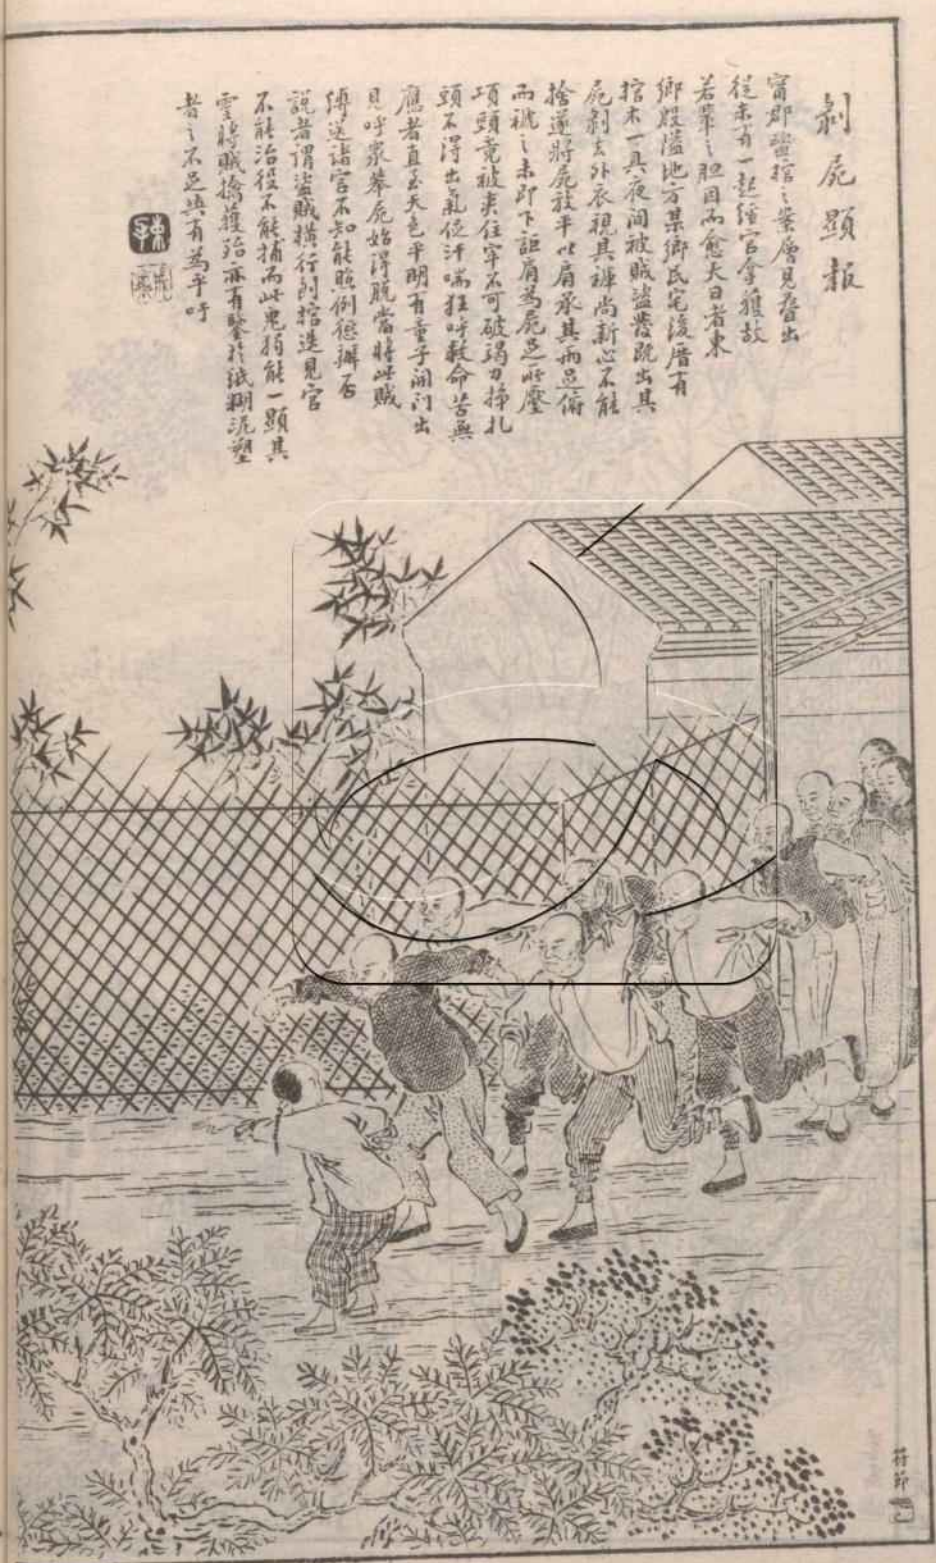 剝屍顯報
甯郡盜棺之案層見疊出
從未有一起經官拿獲故
若輩之胆因而愈大日者東
鄉殷隘地方某鄉民宅後厝有
棺木一具夜间被賊盜發跪出其
屍剝去外衣視其褲尚新心不能
捨遂將屍放平以肩承其兩足俯
而褫之未即下詎肩為屍足所壓
項頸竟被夾住牢不可破竭力掙扎
頭不得出氣促汗喘狂呼救命苦無
應者直至天色平明有童子開门出
見呼衆舉屍始得脫當將此賊
縛送諸官不知能照例懲辦否
説者謂盜賊橫行刳棺迭見官
不能治役不能捕而此鬼獨能一顯其
靈將賊擒獲殆亦有鑒於紙糊泥塑
者之不足與有為乎吁
符節